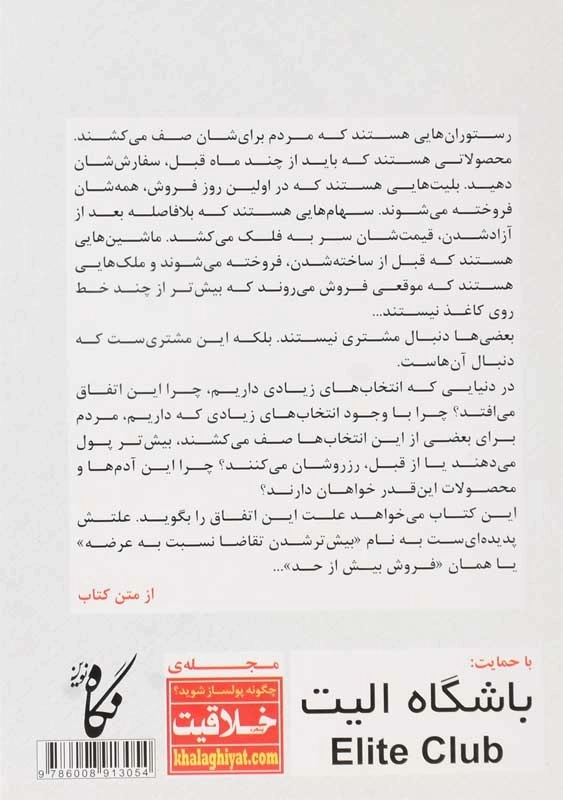 رستوران‌هایی هستند که مردم برای‌شان صف می‌کشند.
محصولاتی هستند که باید از چند ماه قبل، سفارش‌شان
دهید. بلیت‌هایی هستند که در اولین روز فروش، همه‌شان
فروخته می‌شوند. سهام‌هایی هستند که بلافاصله بعد از
آزادشدن، قیمت‌شان سر به فلک می‌کشد. ماشین‌هایی
هستند که قبل از ساخته‌شدن، فروخته می‌شوند و ملک‌هایی
هستند که موقعی فروش می‌روند که بیش‌تر از چند خط
روی کاغذ نیستند...
بعضی‌ها دنبال مشتری نیستند. بلکه این مشتری‌ست که
دنبال آن‌هاست.
در دنیایی که انتخاب‌های زیادی داریم، چرا این اتفاق
می‌افتد؟ چرا با وجود انتخاب‌های زیادی که داریم، مردم
برای بعضی از این انتخاب‌ها صف می‌کشند، بیش‌تر پول
می‌دهند یا از قبل، رزروشان می‌کنند؟ چرا این آدم‌ها و
محصولات این‌قدر خواهان دارند؟
این کتاب می‌خواهد علت این اتفاق را بگوید. علتش
پدیده‌ای‌ست به نام «بیش‌ترشدن تقاضا نسبت به عرضه»
یا همان «فروش بیش از حد»...
از متن کتاب
با حمایت:
باشگاه الیت
Elite Club
مجله‌ی
چگونه پولساز شوید؟
خلاقیت
khalaghiyat.com
نگاه نوین
9 786008 913054